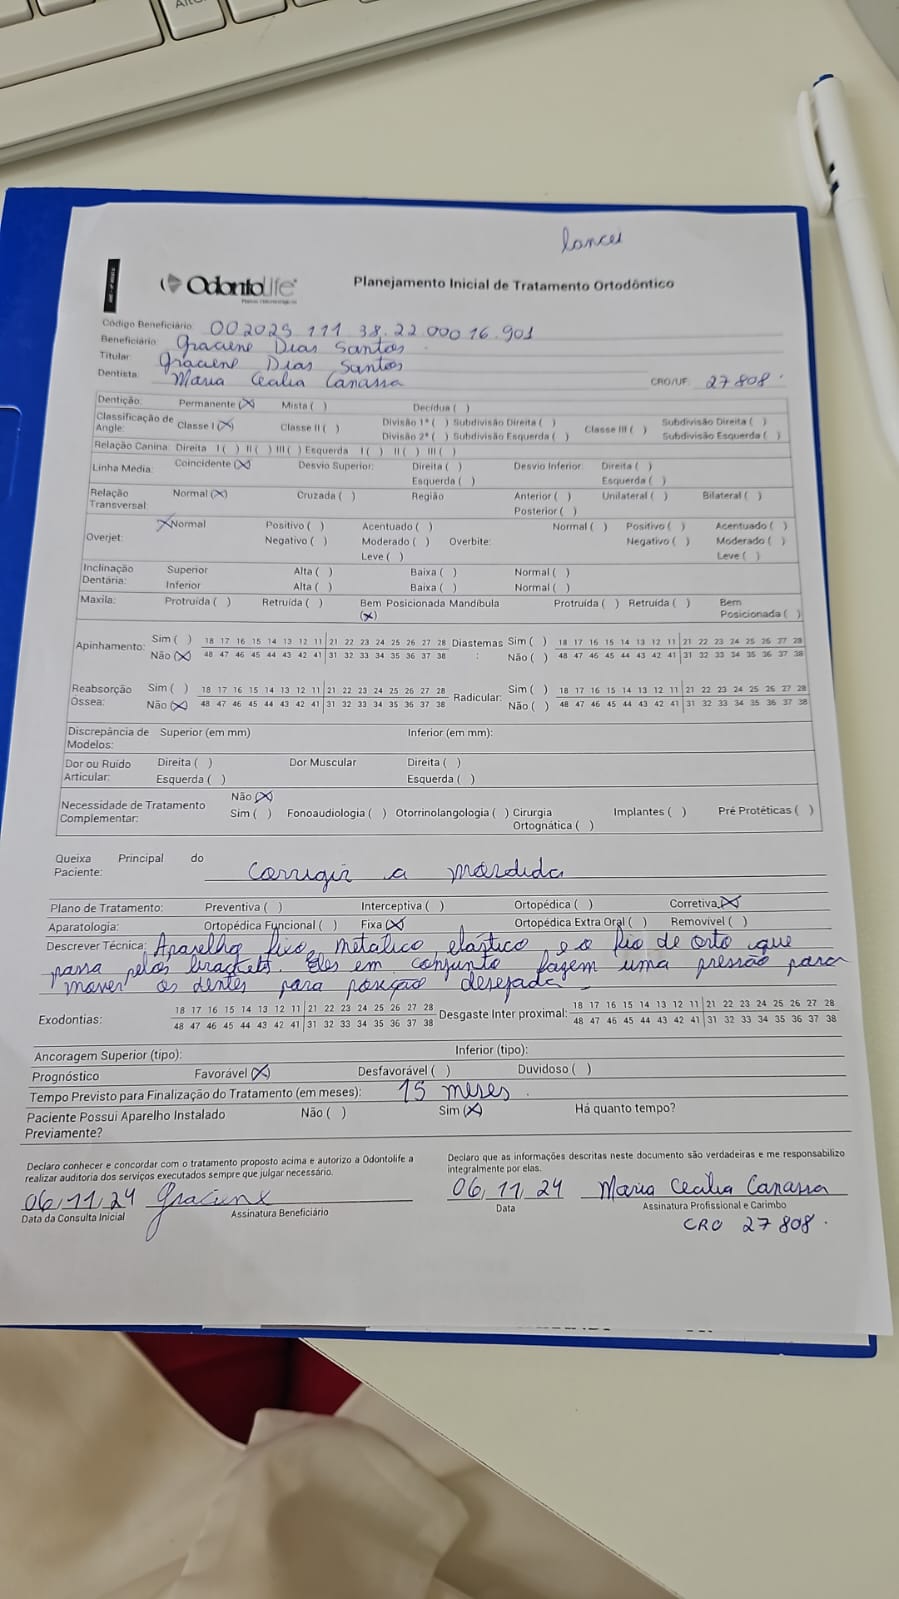 lances
OdontoLife Planejamento Inicial de Tratamento Ortodôntico
Planos Odontológicos
Código Beneficiário: 002025 111 38.22 000 16.901
Beneficiário: Graciene Dias Santos
Titular: Graciene Dias Santos
Dentista: Maria Cecilia Canassa CRO/UF: 27808
Dentição: Permanente (X) Mista ( ) Decídua ( )
Classificação de Angle: Classe I (X) Classe II ( ) Divisão 1ª ( ) Subdivisão Direita ( ) Classe III ( ) Subdivisão Direita ( )
Divisão 2ª ( ) Subdivisão Esquerda ( ) Subdivisão Esquerda ( )
Relação Canina: Direita I ( ) II ( ) III ( ) Esquerda I ( ) II ( ) III ( )
Linha Média: Coincidente (X) Desvio Superior: Direita ( ) Desvio Inferior: Direita ( )
Esquerda ( ) Esquerda ( )
Relação Transversal: Normal (X) Cruzada ( ) Região Anterior ( ) Unilateral ( ) Bilateral ( )
Posterior ( )
Overjet: X Normal Positivo ( ) Acentuado ( ) Overbite: Normal ( ) Positivo ( ) Acentuado ( )
Negativo ( ) Moderado ( ) Negativo ( ) Moderado ( )
Leve ( ) Leve ( )
Inclinação Dentária: Superior Alta ( ) Baixa ( ) Normal ( )
Inferior Alta ( ) Baixa ( ) Normal ( )
Maxila: Protruída ( ) Retruída ( ) Bem Posicionada (X) Mandíbula Protruída ( ) Retruída ( ) Bem Posicionada ( )
Apinhamento: Sim ( ) 18 17 16 15 14 13 12 11 21 22 23 24 25 26 27 28 Diastemas: Sim ( ) 18 17 16 15 14 13 12 11 21 22 23 24 25 26 27 28
Não (X) 48 47 46 45 44 43 42 41 31 32 33 34 35 36 37 38 Não ( ) 48 47 46 45 44 43 42 41 31 32 33 34 35 36 37 38
Reabsorção Óssea: Sim ( ) 18 17 16 15 14 13 12 11 21 22 23 24 25 26 27 28 Radicular: Sim ( ) 18 17 16 15 14 13 12 11 21 22 23 24 25 26 27 28
Não (X) 48 47 46 45 44 43 42 41 31 32 33 34 35 36 37 38 Não ( ) 48 47 46 45 44 43 42 41 31 32 33 34 35 36 37 38
Discrepância de Modelos: Superior (em mm) Inferior (em mm):
Dor ou Ruido Articular: Direita ( ) Dor Muscular Direita ( )
Esquerda ( ) Esquerda ( )
Necessidade de Tratamento Complementar: Não (X)
Sim ( ) Fonoaudiologia ( ) Otorrinolangologia ( ) Cirurgia Ortognática ( ) Implantes ( ) Pré Protéticas ( )
Queixa Principal do Paciente: Corrigir a mordida
Plano de Tratamento: Preventiva ( ) Interceptiva ( ) Ortopédica ( ) Corretiva (X)
Aparatologia: Ortopédica Funcional ( ) Fixa (X) Ortopédica Extra Oral ( ) Removível ( )
Descrever Técnica: Aparelho fixo, metalico elástico, e o fio de orto que
passa pelos brackets. Eles em conjunto fazem uma pressão para
mover os dentes para posição desejada
Exodontias: 18 17 16 15 14 13 12 11 21 22 23 24 25 26 27 28 Desgaste Inter proximal: 18 17 16 15 14 13 12 11 21 22 23 24 25 26 27 28
48 47 46 45 44 43 42 41 31 32 33 34 35 36 37 38 48 47 46 45 44 43 42 41 31 32 33 34 35 36 37 38
Ancoragem Superior (tipo): Inferior (tipo):
Prognóstico Favorável (X) Desfavorável ( ) Duvidoso ( )
Tempo Previsto para Finalização do Tratamento (em meses): 15 meses
Paciente Possui Aparelho Instalado Previamente? Não ( ) Sim (X) Há quanto tempo?
Declaro conhecer e concordar com o tratamento proposto acima e autorizo a Odontolife a
realizar auditoria dos serviços executados sempre que julgar necessário.
Declaro que as informações descritas neste documento são verdadeiras e me responsabilizo
integralmente por elas.
06/11/24 Graciene 06/11/24 Maria Cecilia Canassa
Data da Consulta Inicial Assinatura Beneficiário Data Assinatura Profissional e Carimbo
CRO 27808.